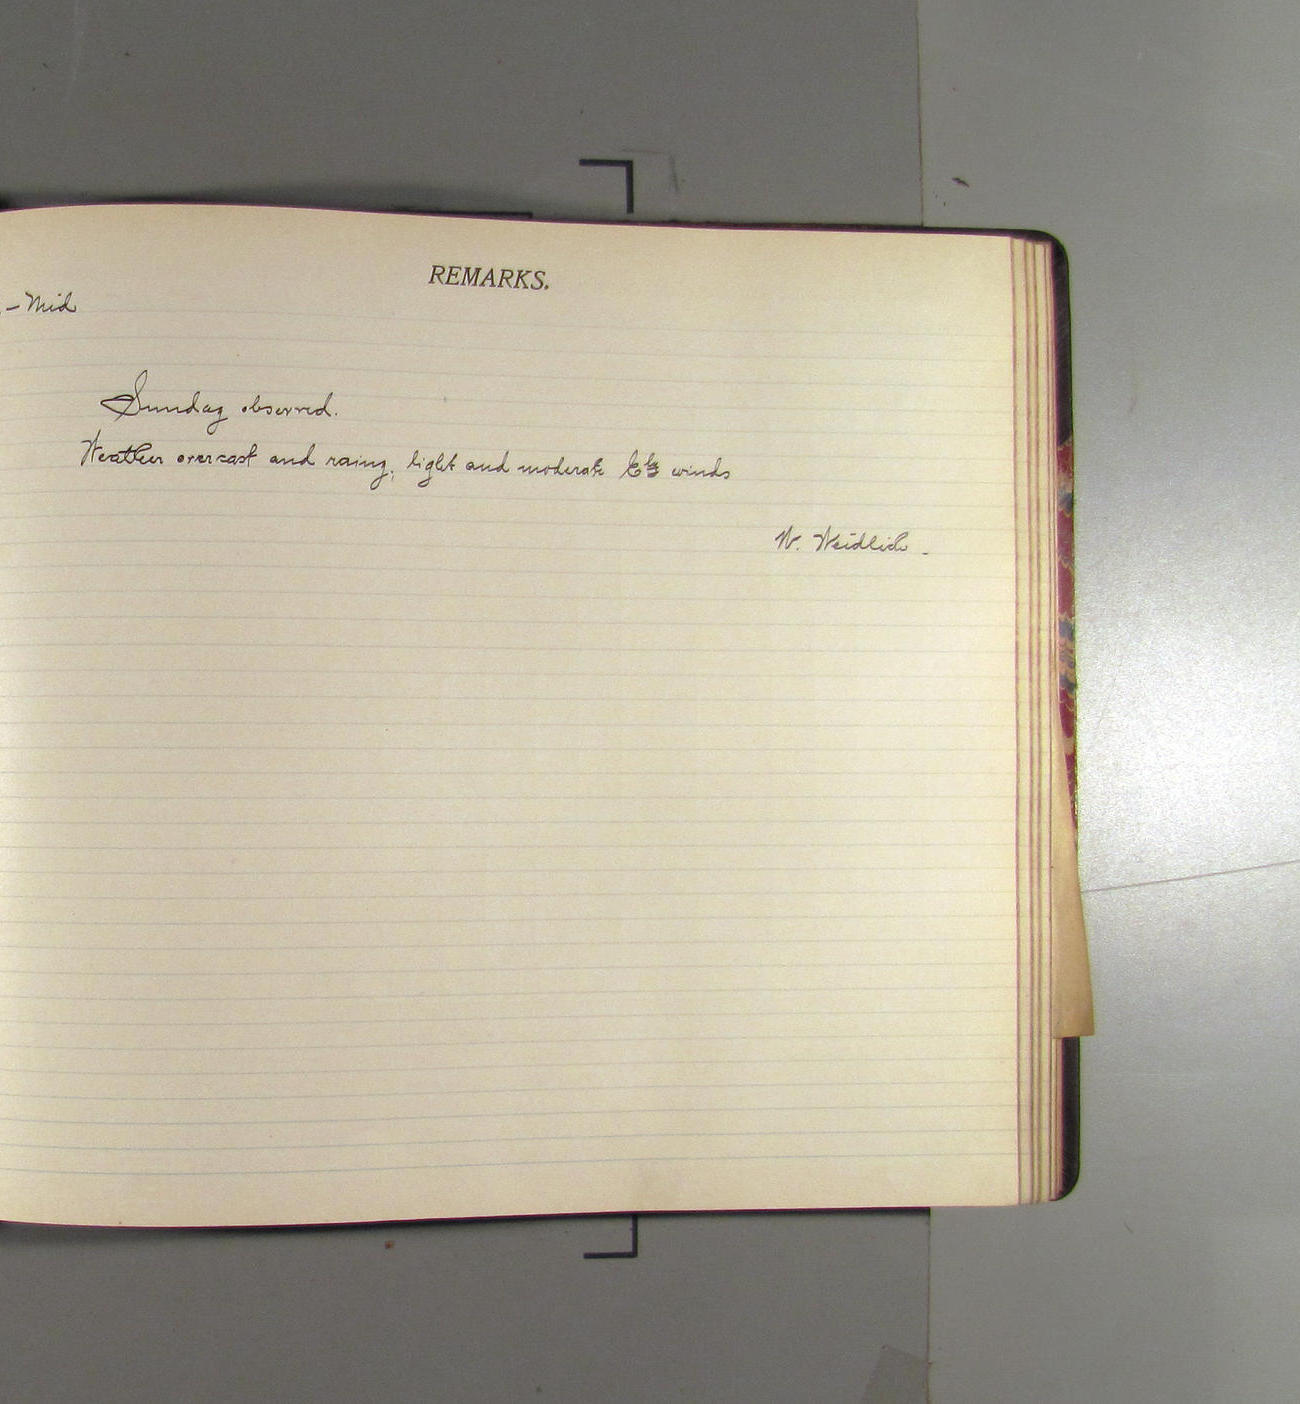 REMARKS.
- Mid
Sunday observed.
Weather overcast and rainy, light and moderate Ely winds
W. Weidlich.